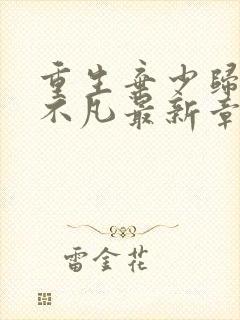 重生弃少歸
不凡最新章
雷金花